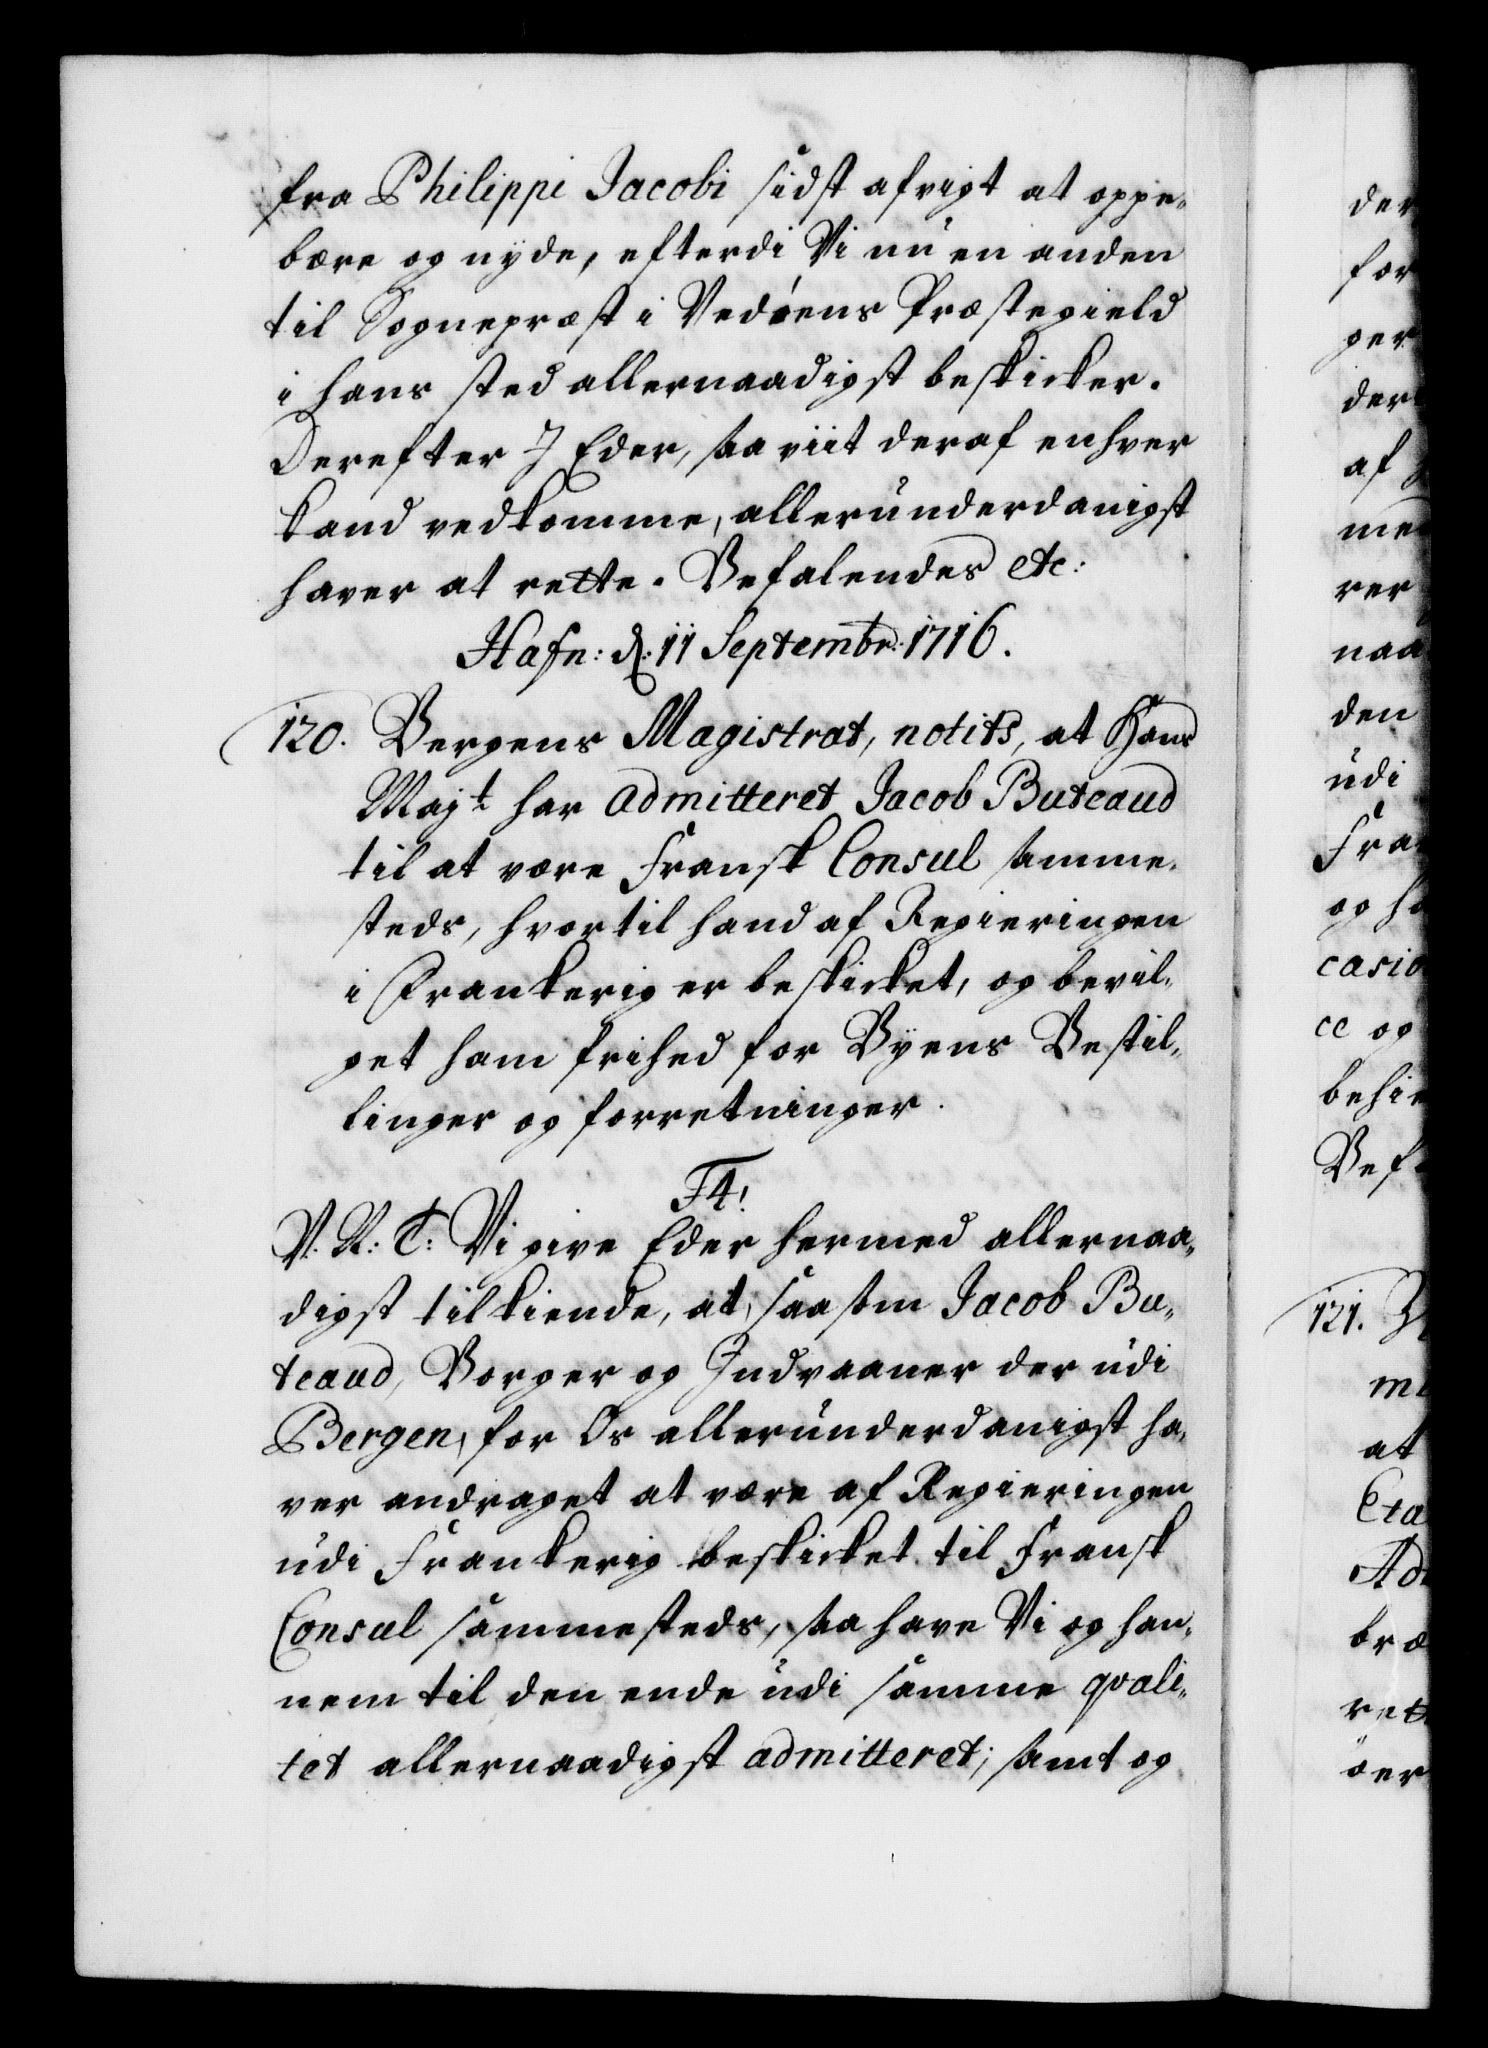 fra Philippi Jacobi sidst afvigt at oppe„
bære og nyde, efterdi Vi nu en anden
til Sognepræst i Vedöens Præstegield
i hans sted allernaadigst beskicker.
Derefter I Eder, saa viit deraf enhver
kand vedkomme, allerunderdanigst
haver at rette. Befalendes etc:
Hafn: d: 11 Septembr: 1716.
120. Bergens Magistrat, notits, at Hans
Majt har admitteret Jacob Buteaud
til at være Fransk Consul samme„
steds, hvortil hand af Regieringen
i Frankerig er beskicket, og bevil„
get ham frihed for Byens Bestil„
linger og forretninger.
F4!
V. A: T: Vi give Eder hermed allernaa„
digst tilkiende, at, saasom Jacob Bu„
teaud, Borger og Indvaaner der udi
Bergen, for Os allerunderdanigst ha„
ver andraget at være af Regieringen
udi Frankerig beskicket til Fransk
Consul sammesteds, saa have Vi og han„
nem til den ende udi samme qvali„
tet allernaadigst admitteret; samt og
der
for
ger
der
af
me
rer
naa
den
udi
Fra
og ha
casio
ce og
behie
Bef
121.
mi
at
Eta
Ad
bræ
rett
öer